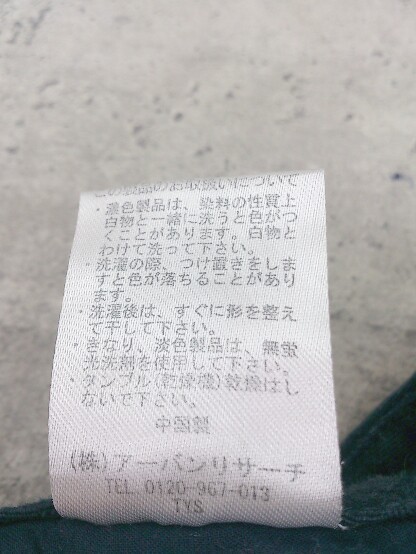 この製品のお取扱いについて
・濃色製品は、染料の性質上
白物と一緒に洗うと色がつ
くことがあります。白物と
わけて洗って下さい。
・洗濯の際、つけ置きをしま
すと色が落ちることがあり
ます。
・洗濯後は、すぐに形を整え
て干して下さい。
・きなり、淡色製品は、無蛍
光洗剤を使用して下さい。
・タンブル(乾燥機)乾燥はし
ないで下さい。
中国製
(株)アーバンリサーチ
TEL 0120-967-013
TYS